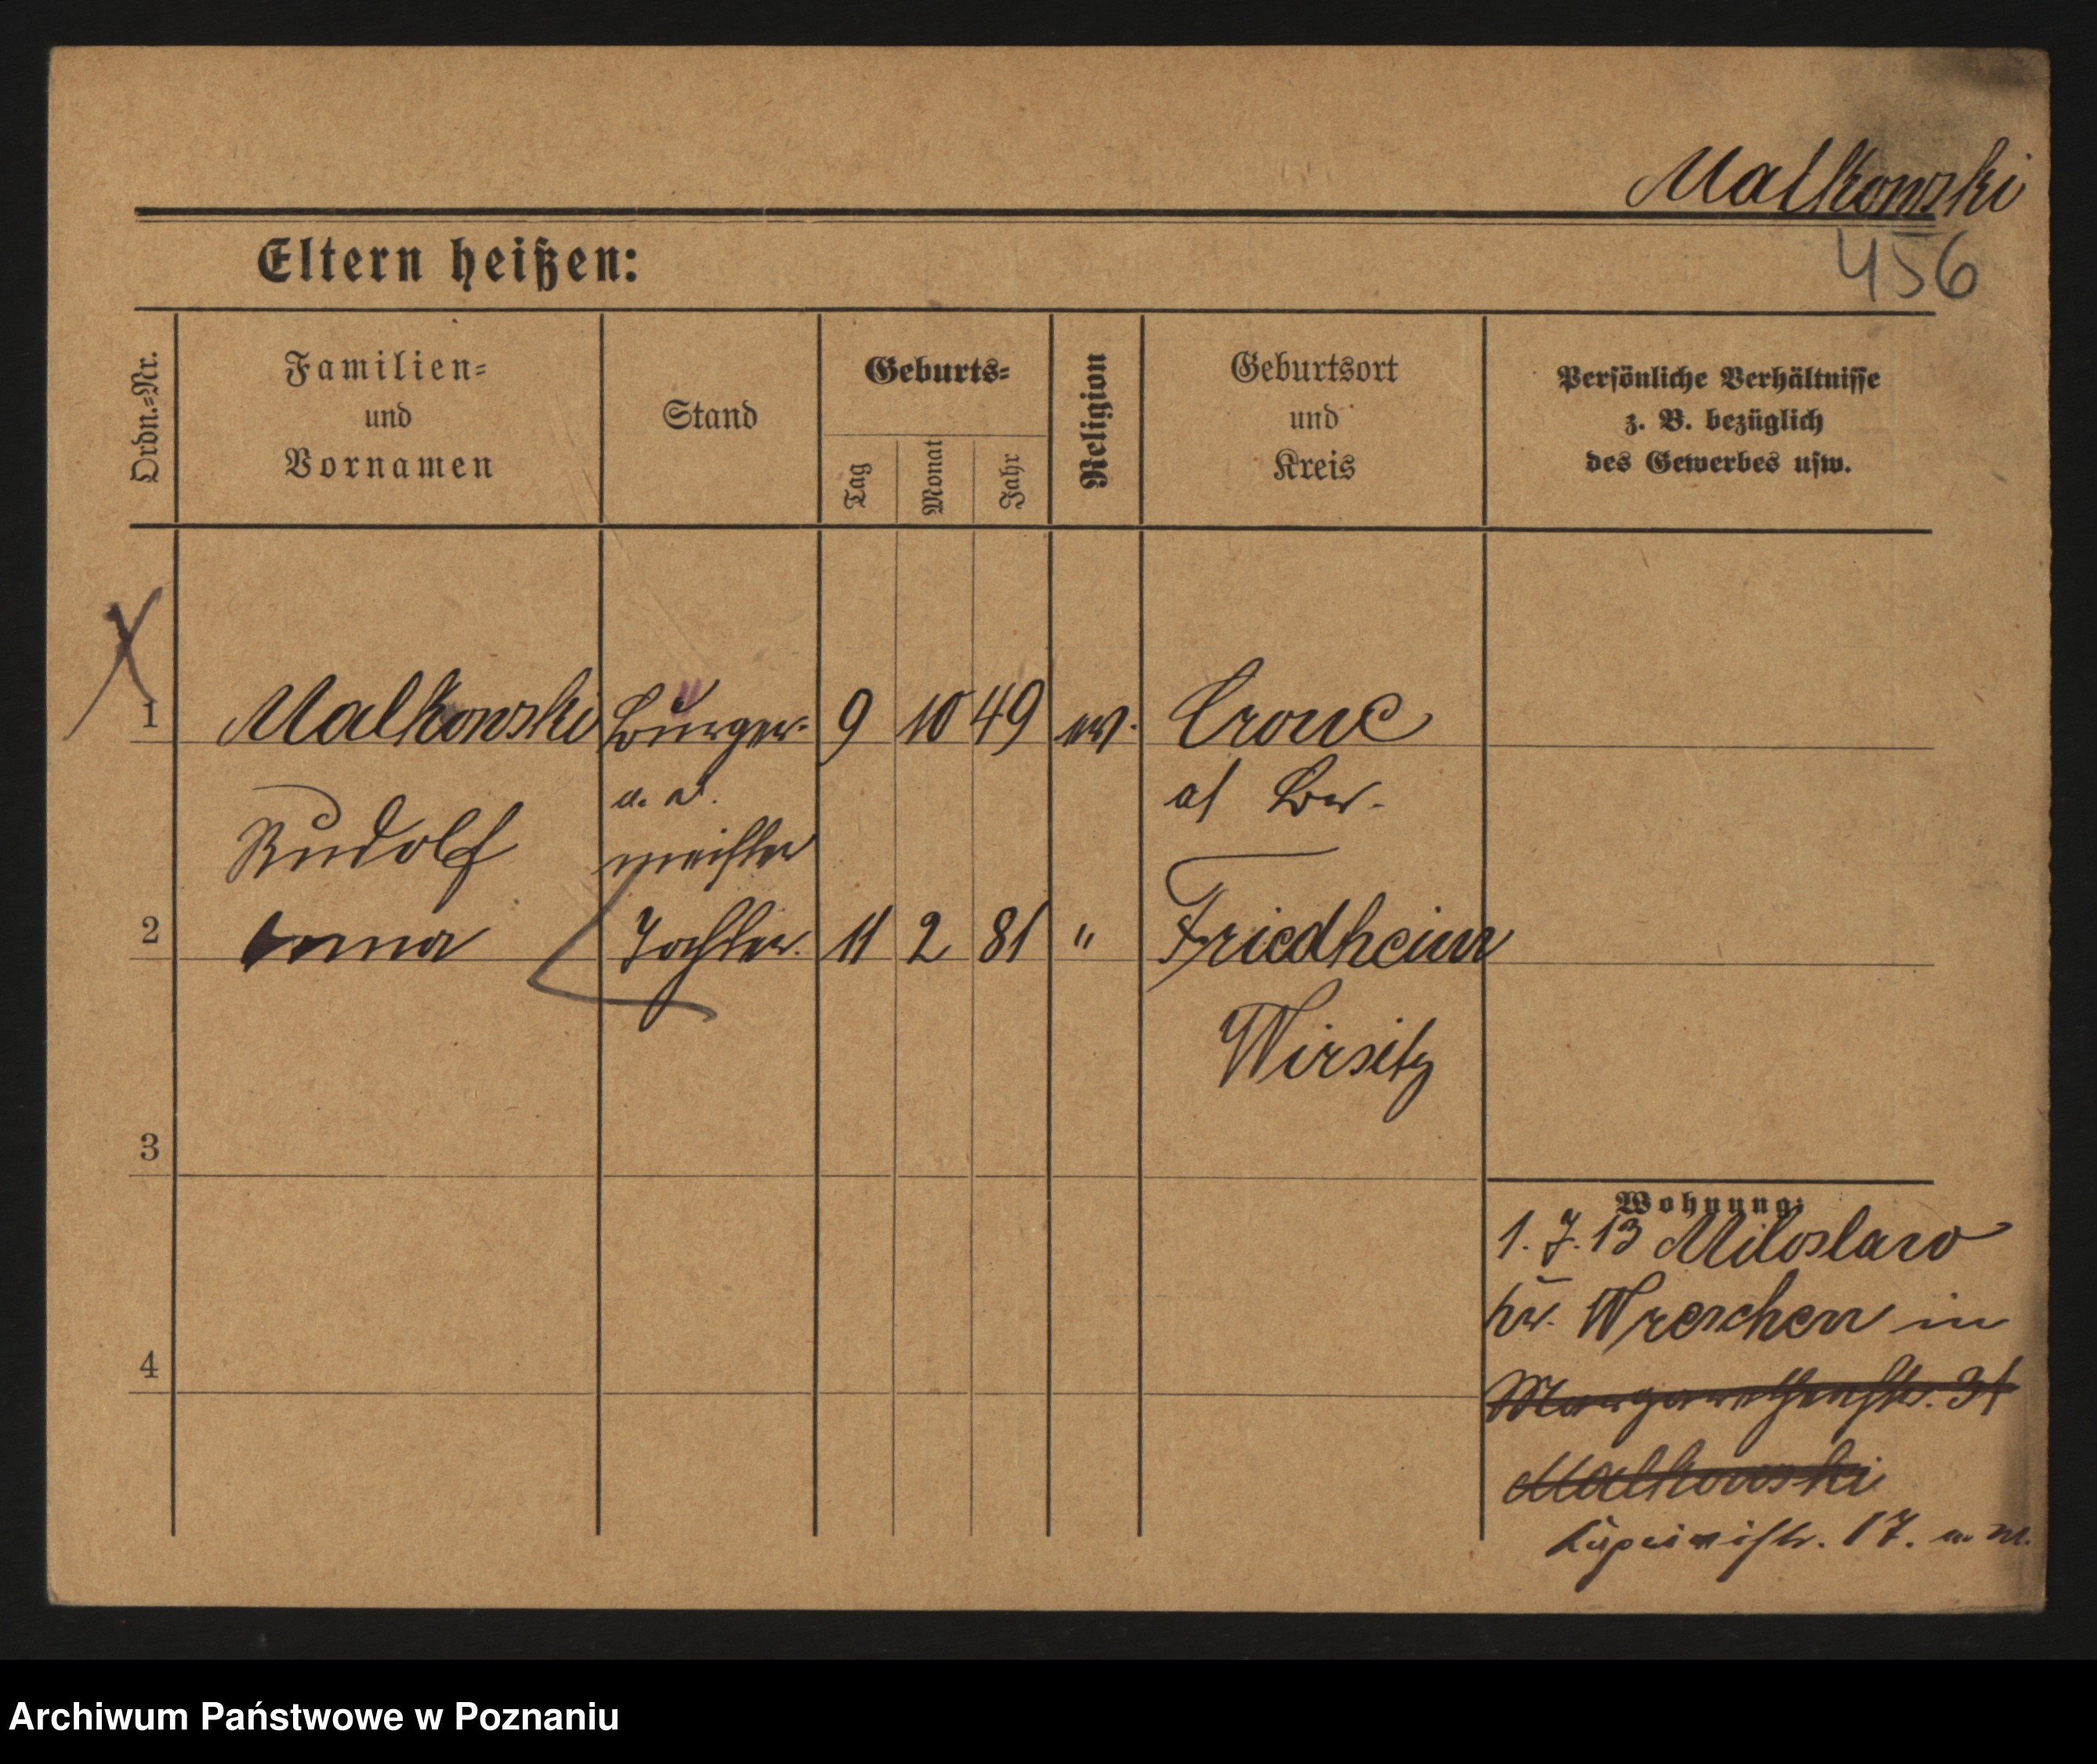 Malkowski
456
Eltern heißen:
Ordn.-Nr.
Familien-
und
Vornamen
Stand
Geburts-
Tag
Monat
Jahr
Religion
Geburtsort
und
Kreis
Persönliche Verhältnisse
z. B. bezüglich
des Gewerbes usw.
1 Malkowski Bürger- 9 10 49 ev. Crone
a. D. a/ Br.
Rudolf meister
2 Anna Tochter. 11 2 81 " Friedheim
Wirsitz
3
4
Wohnung:
1. 7. 13 Miloslaw
Kr. Wreschen in
Margarethenstr. 31
Malkowski
17.
Archiwum Państwowe w Poznaniu